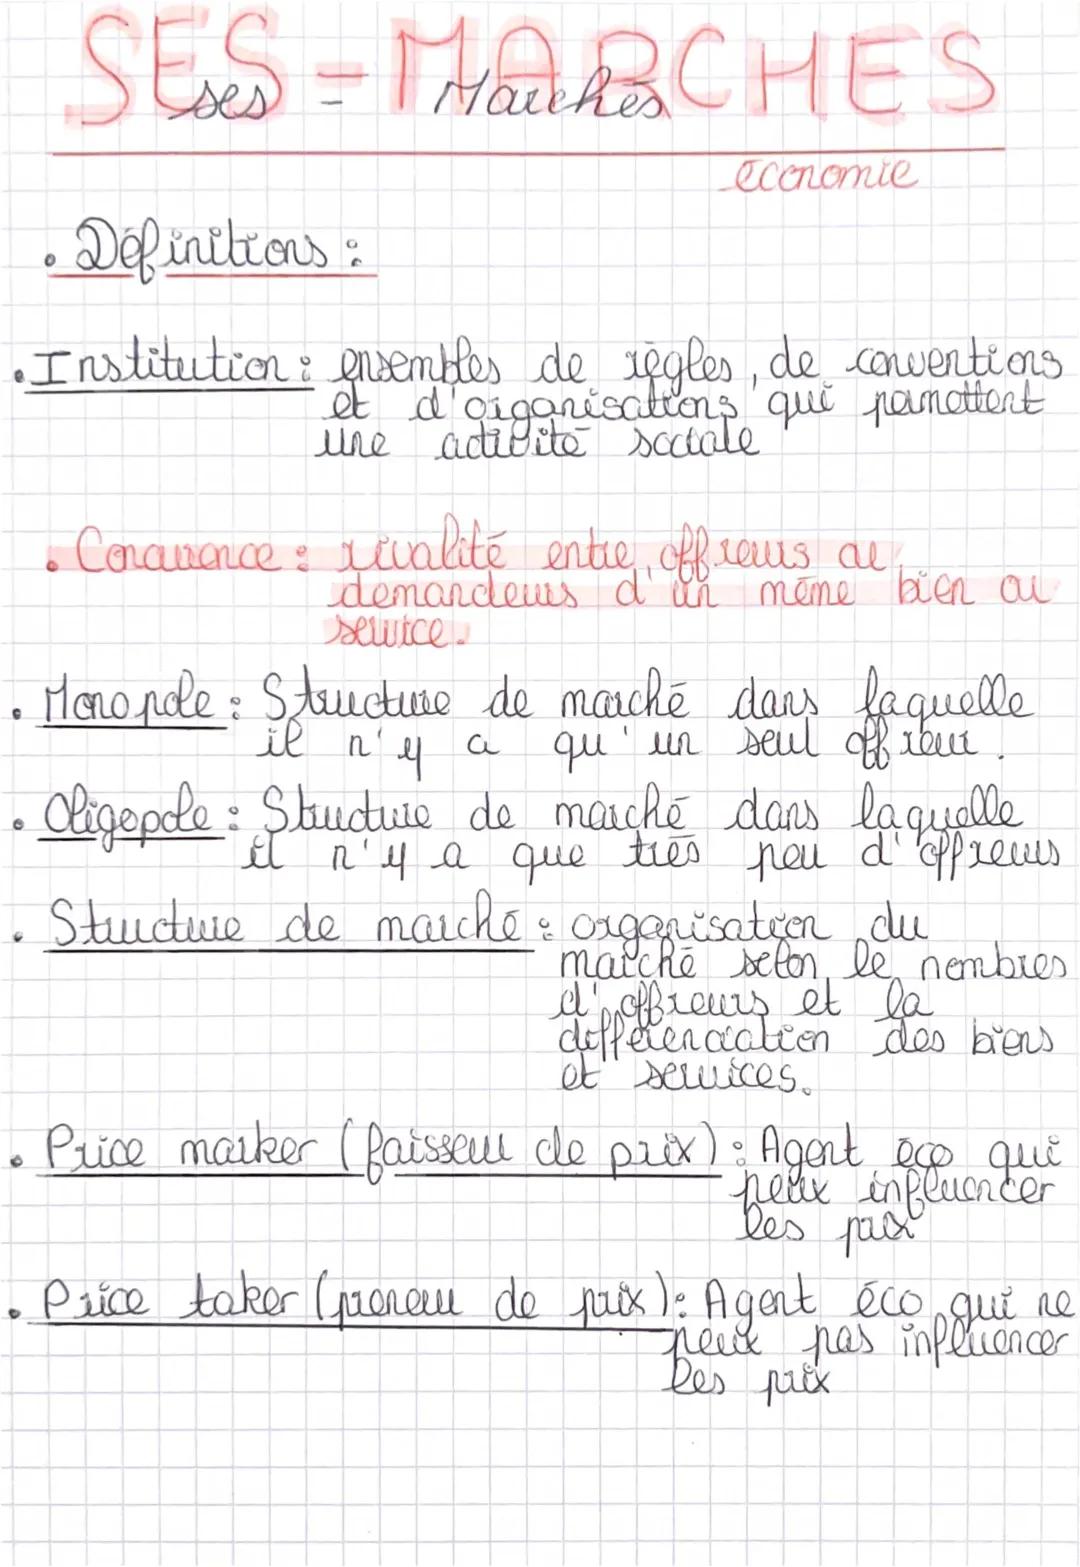 SES - MARCHES
ses - Marchés
économie
• Définitions :
• Institution : ensembles de règles, de conventions
et d'organisations qui permettent
une activité sociale
• Concurrence : rivalité entre offreurs ou
demandeurs d'un même bien ou
service.
• Monopole : Structure de marché dans laquelle
il n'y a qu'un seul offreur.
• Oligopole : Structure de marché dans laquelle
il n'y a que très peu d'offreurs
• Structure de marché : organisation du
marché selon le nombres
d'offreurs et la
différenciation des biens
et services.
• Price marker (faisseur de prix) : Agent éco qui
peux influencer
les prix
• Price taker (preneur de prix) : Agent éco qui ne
peux pas influencer
les prix